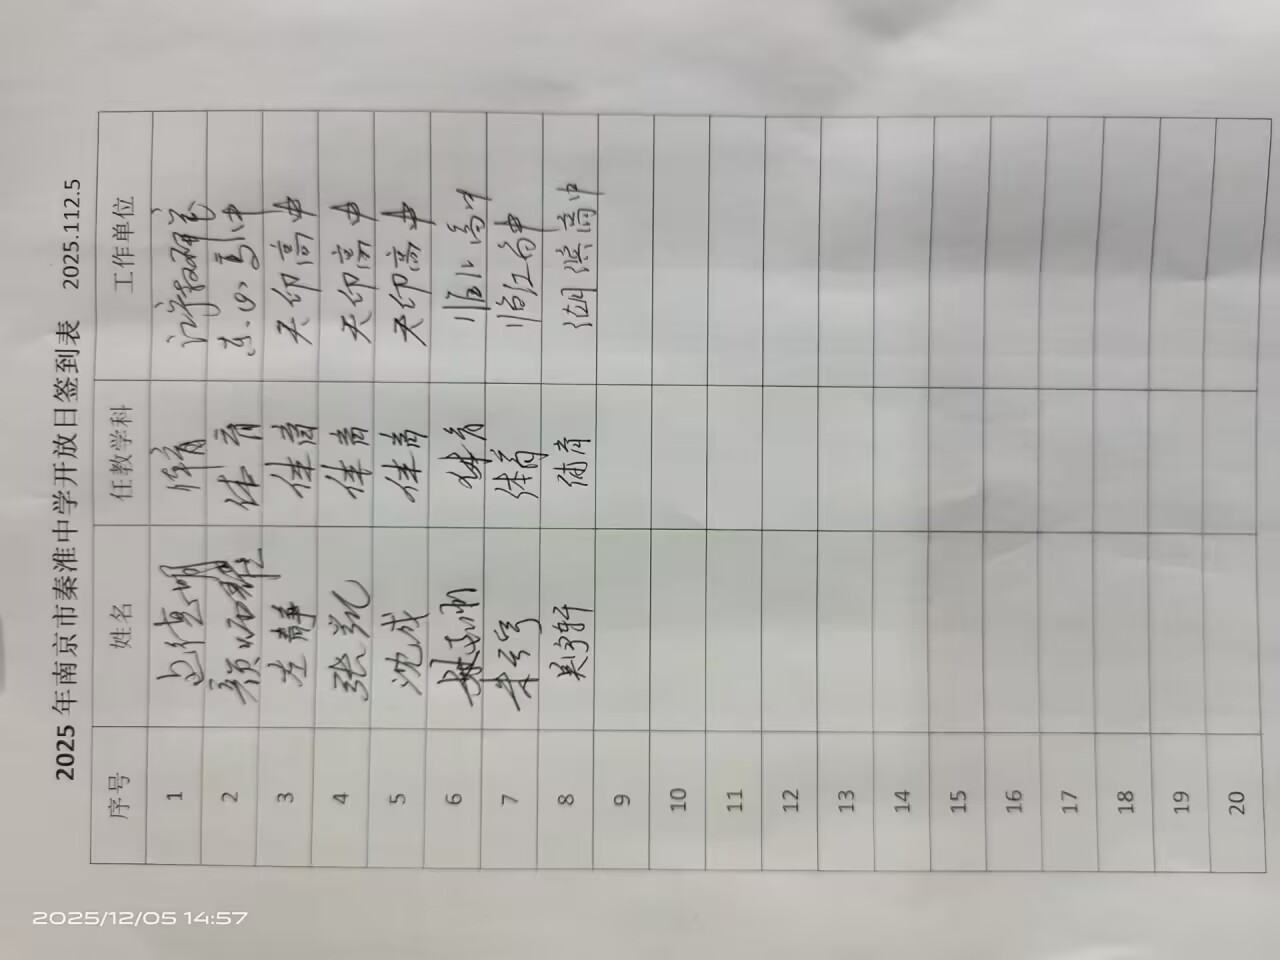 2025 年南京市秦淮中学开放日签到表 2025.112.5
序号 姓名 任教学科 工作单位
1 体育
2 体育 高中
3 左静 体育 天印高中
4 张凯 体育 天印高中
5 沈成 体育 天印高中
6 体育 高中
7 体育 临江高中
8 吴宇轩 体育 湖滨高中
9
10
11
12
13
14
15
16
17
18
19
20
2025/12/05 14:57